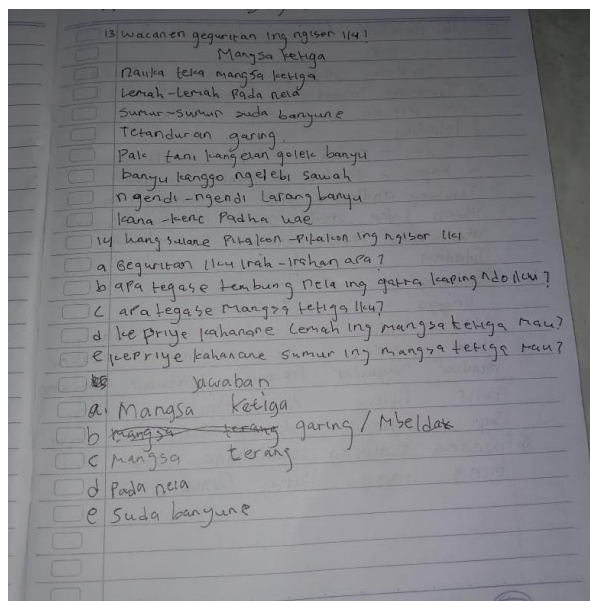 13 Wacanen geguritan ing ngisor iki!
Mangsa ketiga
Nauka teka mangsa ketiga
Lemah-lemah Pada nela
Sumur-sumur suda banyune
Tetanduran garing.
Pak tani kangelan golek banyu
banyu kanggo ngelebi sawah
ngendi-ngendi Larang banyu
kana-kene Padha wae
14 Wangsulane Pitakon-Pitakon ing ngisor iki
a Geguritan iku irah-irahan apa?
b apa tegase tembung nela ing gatra kaping ndo iku?
c apa tegase mangsa tetiga iku?
d. ke priye kahanane Lemah ing mangsa ketiga mau?
e kepriye kahanane sumur ing mangsa tetiga mau?
Jawaban
a. Mangsa Ketiga
b mangsa terang garing / Mbeldak
c Mangsa terang
d Pada nela
e Suda banyune